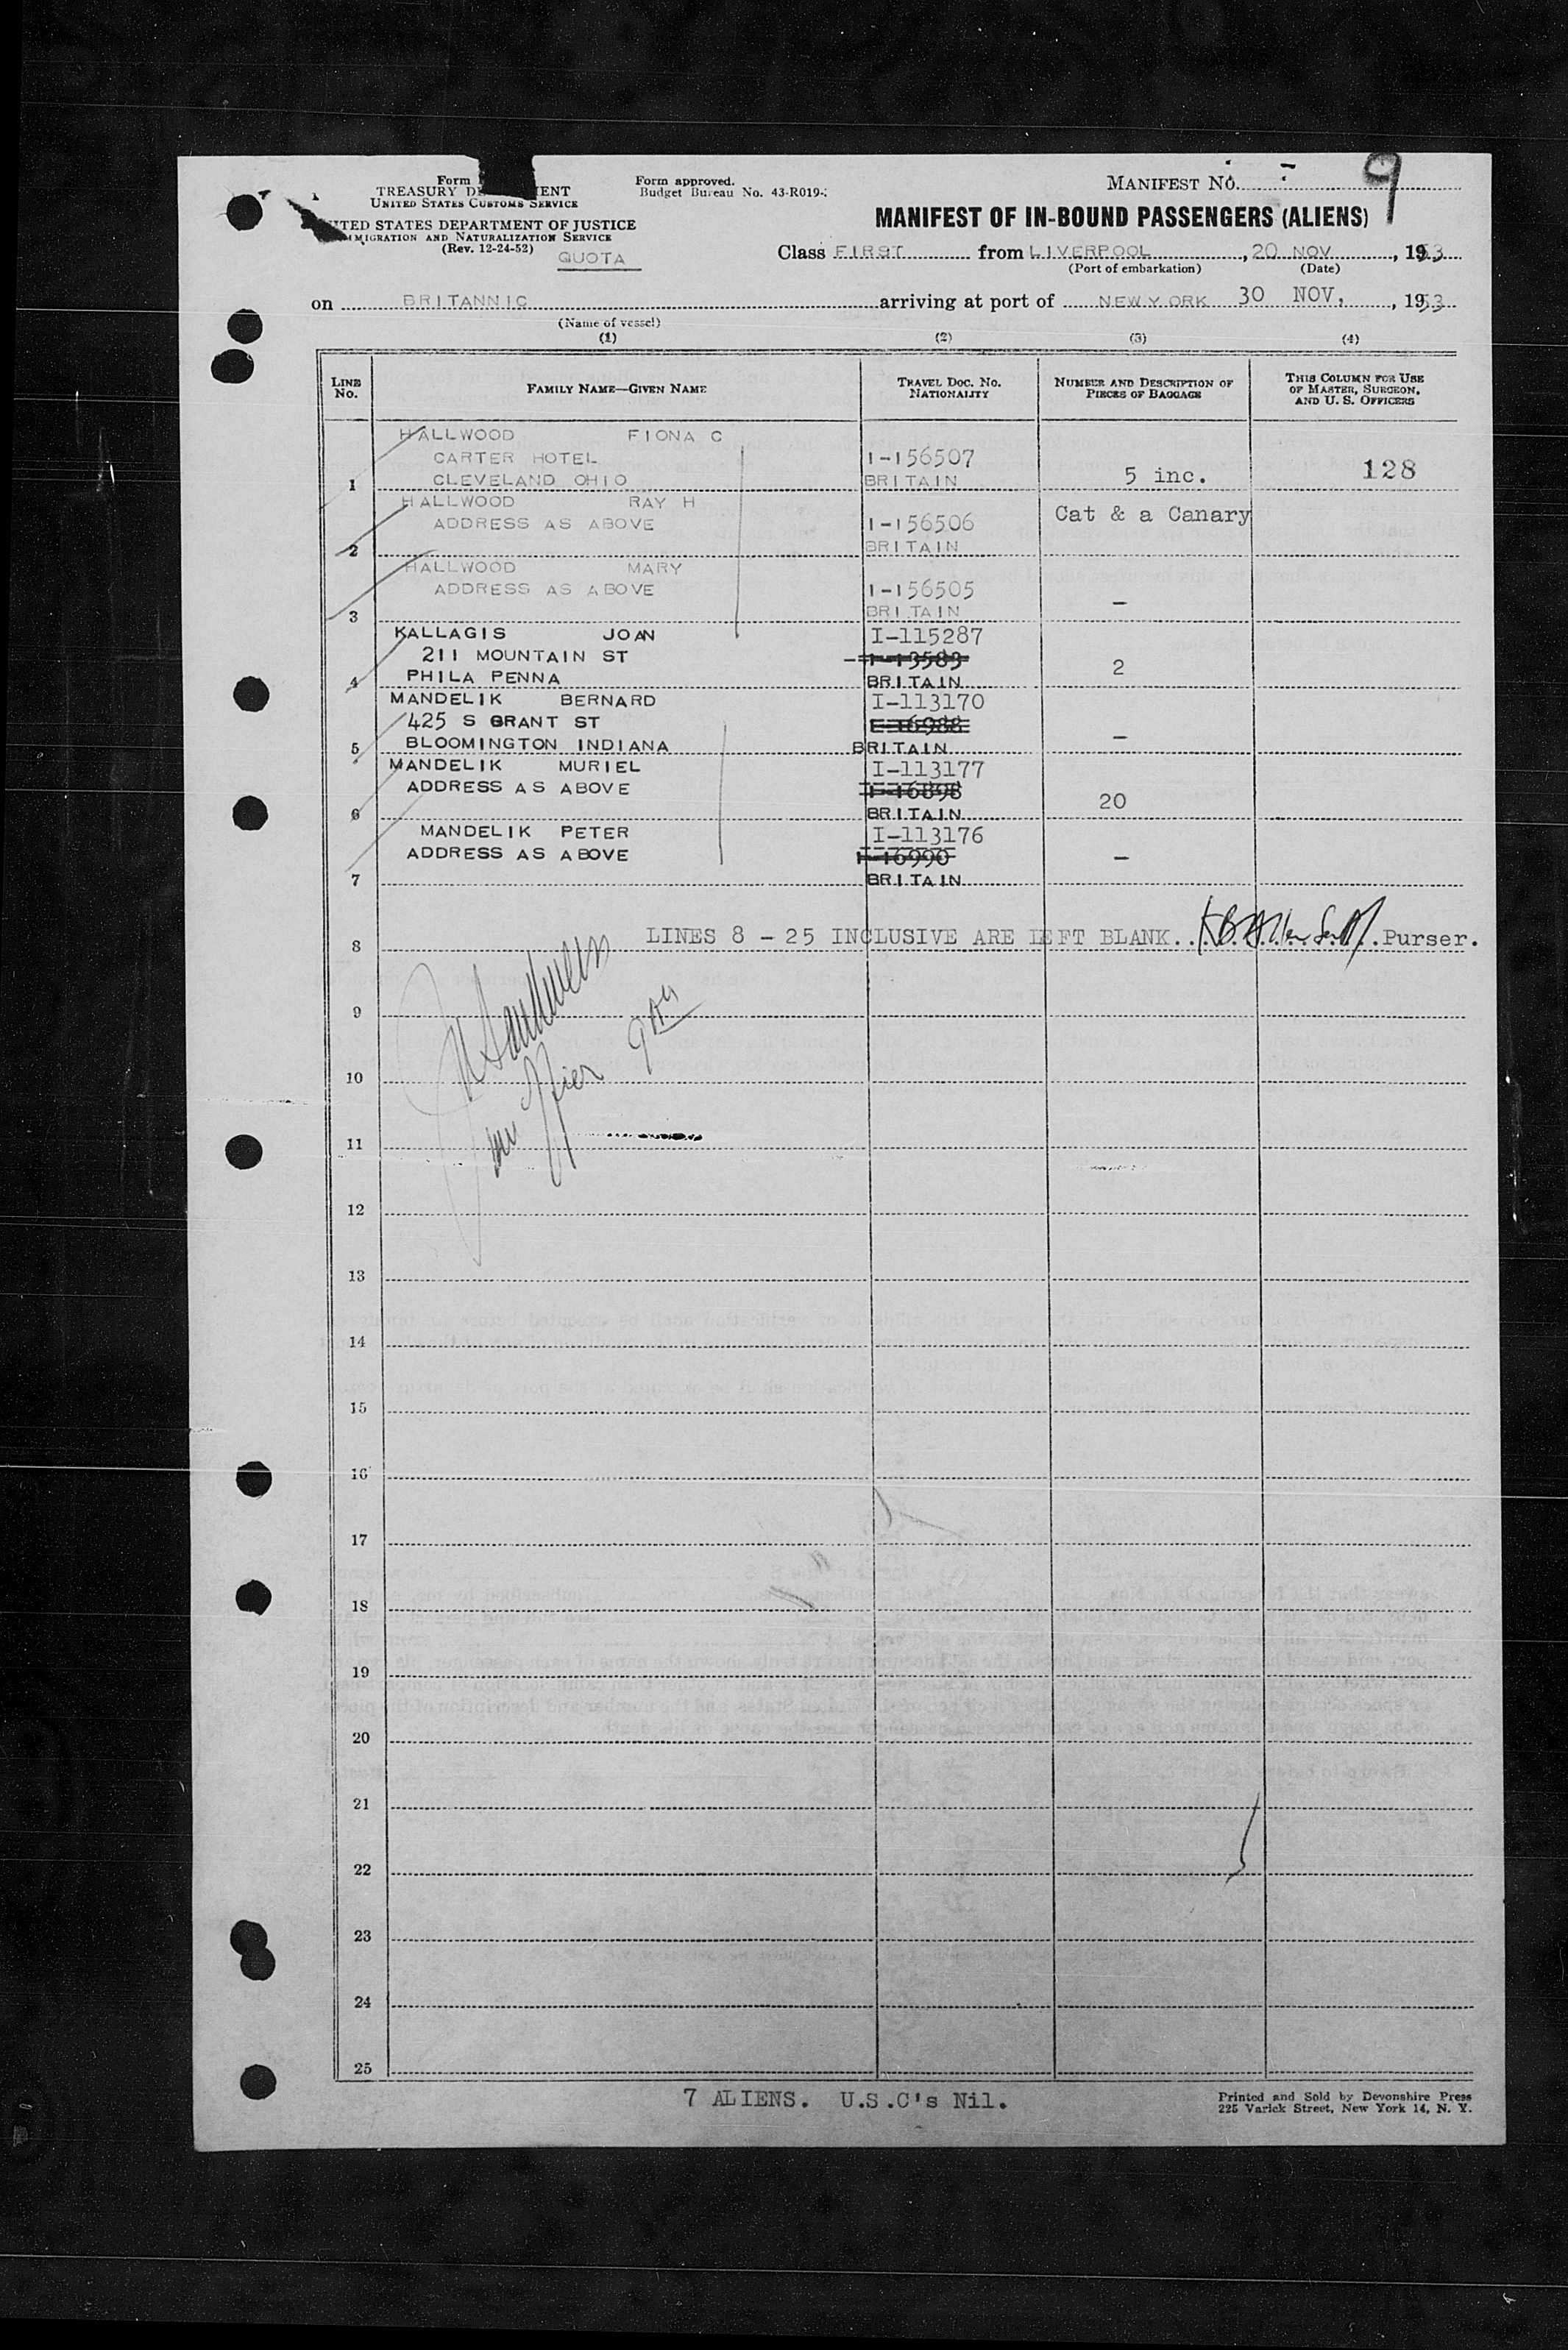 Form
Form approved.
MANIFEST NO. 9
TREASURY DEPARTMENT
Budget Bureau No. 43-R019-
UNITED STATES CUSTOMS SERVICE
UNITED STATES DEPARTMENT OF JUSTICE
MANIFEST OF IN-BOUND PASSENGERS (ALIENS)
IMMIGRATION AND NATURALIZATION SERVICE
(Rev. 12-24-52)
QUOTA
Class FIRST from LIVERPOOL, 20 NOV, 1953
(Port of embarkation) (Date)
on BRITANNIC arriving at port of NEW YORK 30 NOV., 1953
(Name of vessel)
(1) (2) (3) (4)
LINE NO.
FAMILY NAME—GIVEN NAME
TRAVEL DOC. NO. NATIONALITY
NUMBER AND DESCRIPTION OF PIECES OF BAGGAGE
THIS COLUMN FOR USE OF MASTER, SURGEON, AND U. S. OFFICERS
HALLWOOD FIONA C
CARTER HOTEL I-156507
1 CLEVELAND OHIO BRITAIN 5 inc. 128
HALLWOOD RAY H Cat & a Canary
ADDRESS AS ABOVE I-156506
2 BRITAIN
HALLWOOD MARY
ADDRESS AS ABOVE I-156505
3 BRITAIN –
KALLAGIS JOAN I-115287
211 MOUNTAIN ST I-13583
4 PHILA PENNA BRITAIN 2
MANDELIK BERNARD I-113170
425 S GRANT ST I-16988
5 BLOOMINGTON INDIANA BRITAIN –
MANDELIK MURIEL I-113177
ADDRESS AS ABOVE
6 BRITAIN 20
MANDELIK PETER I-113176
ADDRESS AS ABOVE I-16990 –
7 BRITAIN
8 LINES 8 - 25 INCLUSIVE ARE LEFT BLANK. Purser.
9
10
11
12
13
14
15
16
17
18
19
20
21
22
23
24
25
7 ALIENS. U.S.C's Nil.
Printed and Sold by Devonshire Press
225 Varick Street, New York 14, N. Y.